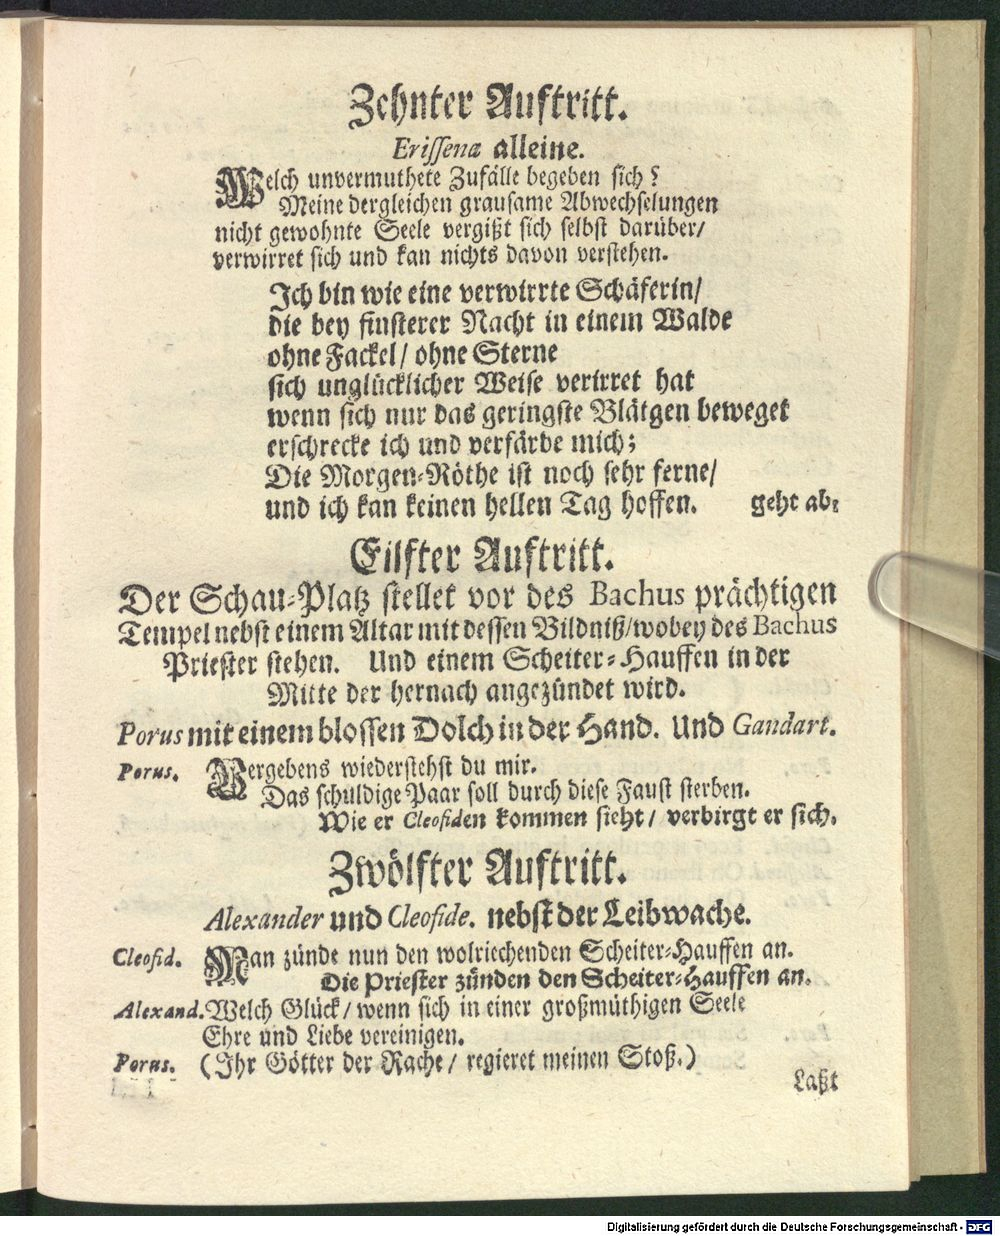 Zehnter Auftritt.
Erissena alleine.
Welch unvermuthete Zufälle begeben sich?
Meine dergleichen grausame Abwechselungen
nicht gewohnte Seele vergißt sich selbst darüber/
verwirret sich und kan nichts davon verstehen.
Ich bin wie eine verwirrte Schäferin/
die bey finsterer Nacht in einem Walde
ohne Fackel/ ohne Sterne
sich unglücklicher Weise verirret hat
wenn sich nur das geringste Blätgen beweget
erschrecke ich und verfärbe mich;
Die Morgen-Röthe ist noch sehr ferne/
und ich kan keinen hellen Tag hoffen. geht ab:
Eilfter Auftritt.
Der Schau-Platz stellet vor des Bachus prächtigen
Tempel nebst einem Altar mit dessen Bildniß/wobey des Bachus
Priester stehen. Und einem Scheiter-Hauffen in der
Mitte der hernach angezündet wird.
Porus mit einem blossen Dolch in der Hand. Und Gandart.
Porus. Vergebens wiederstehst du mir.
Das schuldige Paar soll durch diese Faust sterben.
Wie er Cleofiden kommen sieht/ verbirgt er sich.
Zwölfter Auftritt.
Alexander und Cleofide. nebst der Leibwache.
Cleofid. Man zünde nun den wolriechenden Scheiter-Hauffen an.
Die Priester zünden den Scheiter-Hauffen an.
Alexand. Welch Glück/ wenn sich in einer großmüthigen Seele
Ehre und Liebe vereinigen.
Porus. (Ihr Götter der Rache/ regieret meinen Stoß.)
Laßt
Digitalisierung gefördert durch die Deutsche Forschungsgemeinschaft - DFG